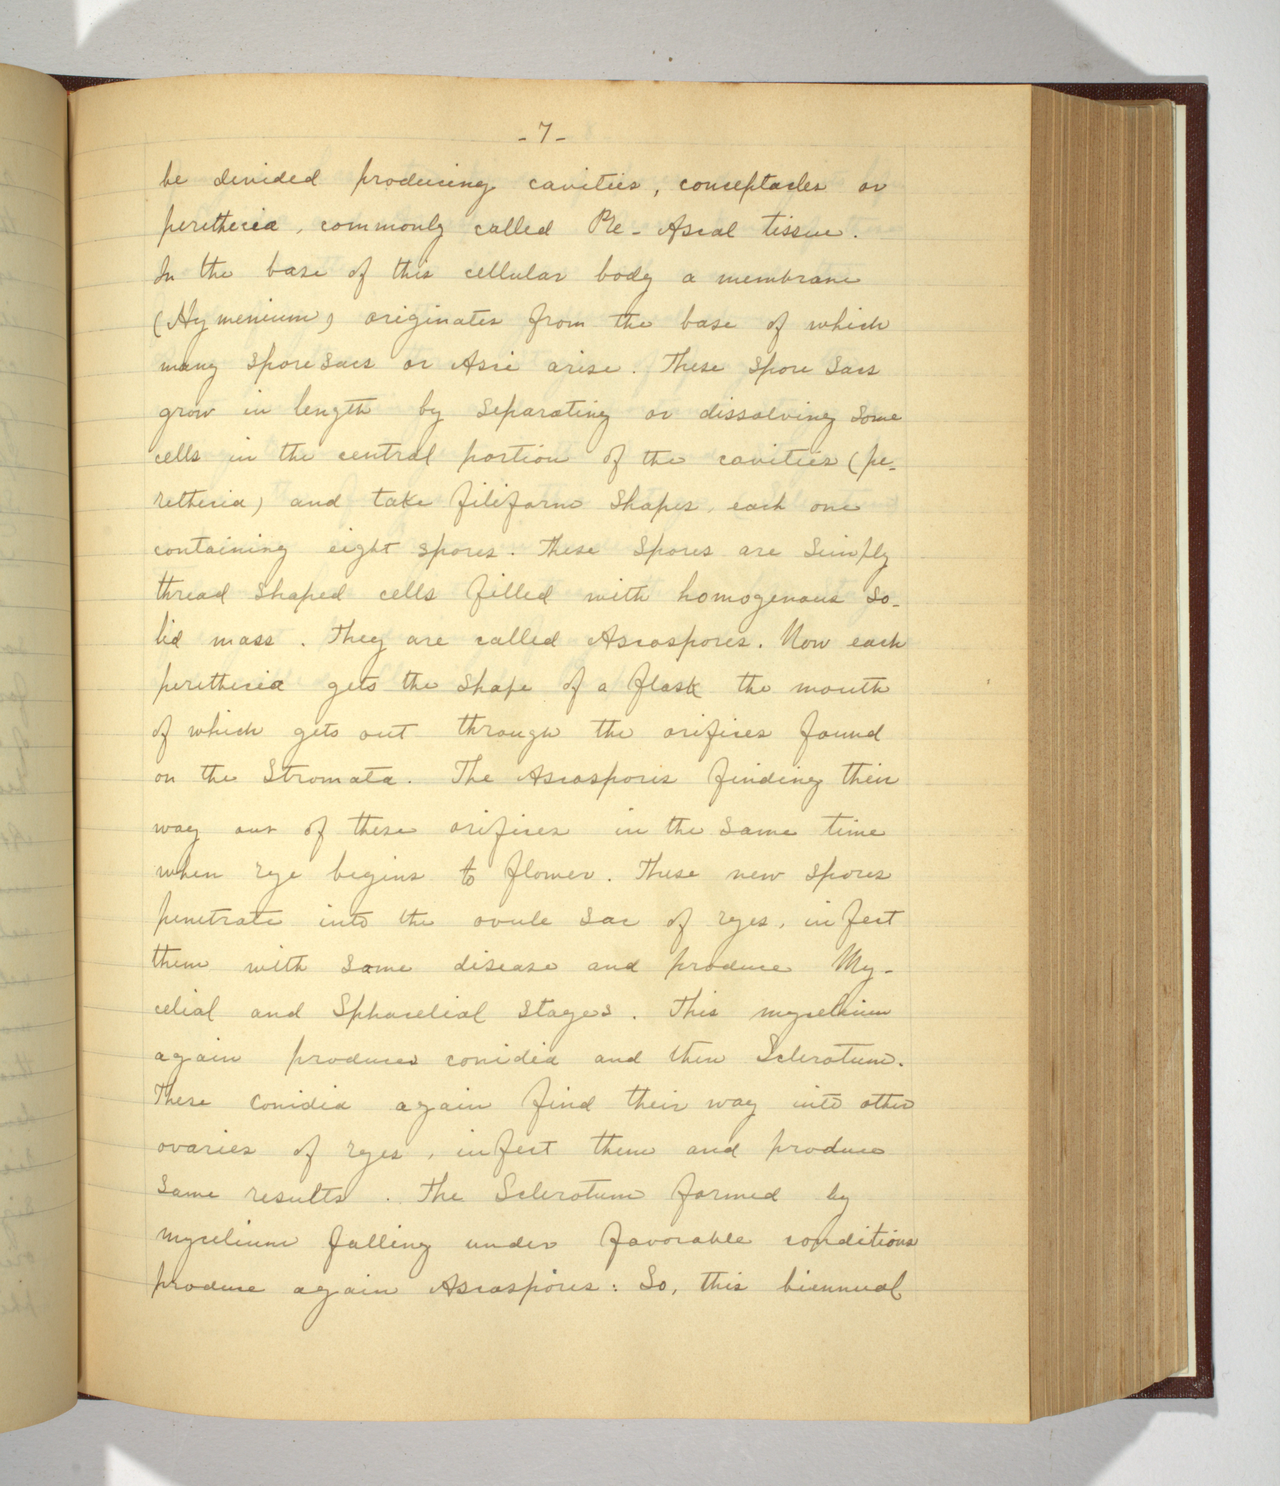 -7-
be divided producing cavities, conceptacles or
perithecia, commonly called Pre-Ascal tissue.
In the base of this cellular body a membrane
(Hymenium) originates from the base of which
many spore sacs or Asci arise. These spore sacs
grow in length by separating or dissolving some
cells in the central portion of the cavities (pe-
rithecia) and take filiform shapes, each one
containing eight spores. These spores are simply
thread shaped cells filled with homogenous so-
lid mass. They are called Ascospores. Now each
perithecia gets the shape of a flask the mouth
of which gets out through the orifices found
on the Stromata. The Ascospores finding their
way out of these orifices in the same time
when rye begins to flower. These new spores
penetrate into the ovule sac of ryes, infect
them with same disease and produce My-
celial and Sphacelial stages. This mycelium
again produces conidia and then Sclerotum.
These conidia again find their way into other
ovaries of ryes, infect them and produce
same results. The Sclerotum formed by
mycelium falling under favorable conditions
produce again Ascospores: So, this biennual